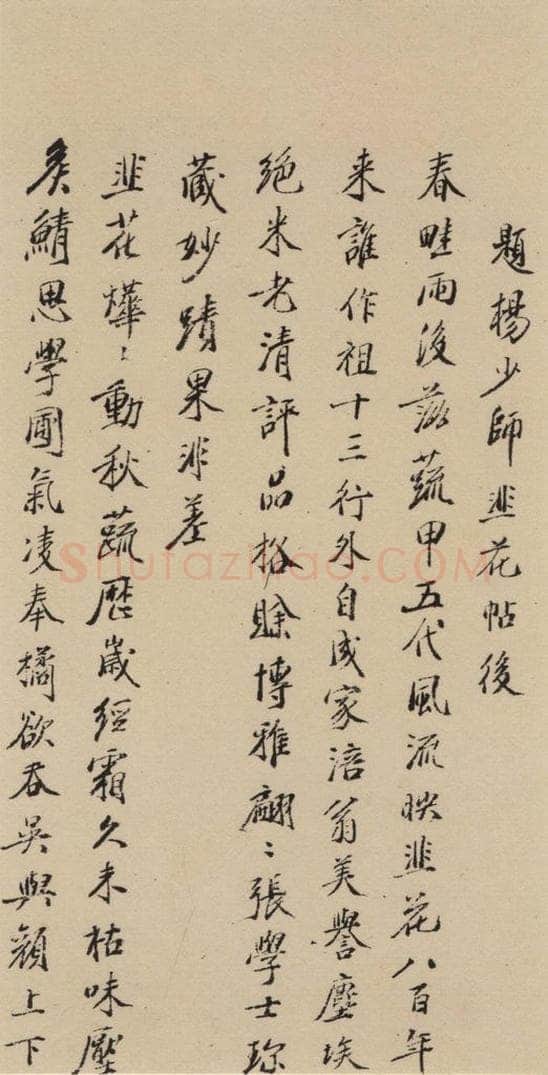 題楊少師韭花帖後
春畦雨後落蔬甲五代風流映韭花八百年
来誰作祖十三行外自成家涪翁美譽塵埃
絕米老清評品格賒博雅翩〻張學士珎
藏妙蹟果非差
韭花燁〻動秋蔬歷歲經霜久未枯味壓
矦鯖思學圃氣凌奉橘欲吞吳與顏上下